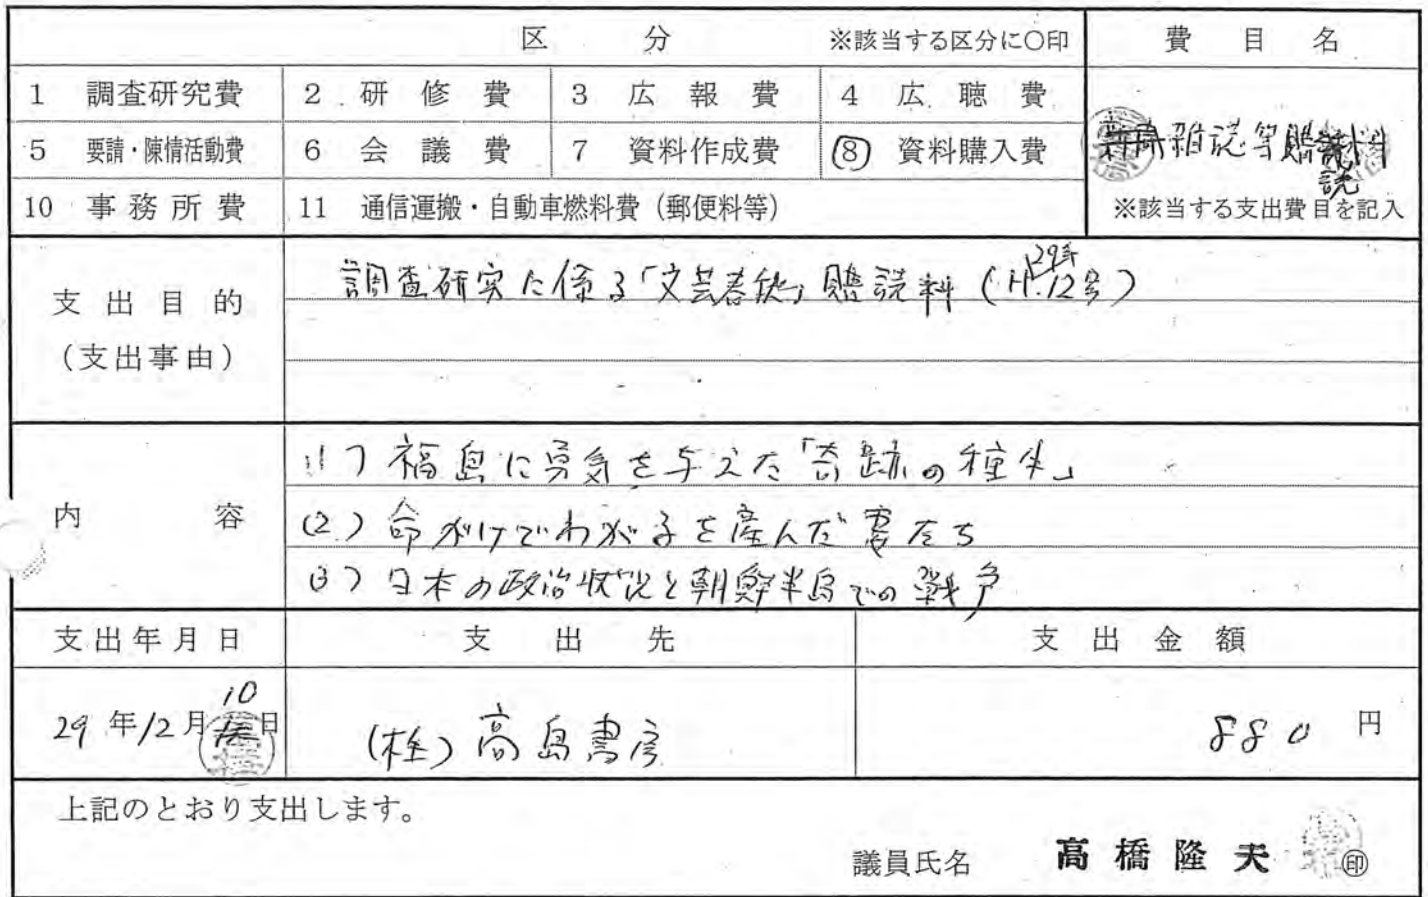 区分 ※該当する区分に○印 費目名
1 調査研究費 2 研修費 3 広報費 4 広聴費
5 要請・陳情活動費 6 会議費 7 資料作成費 ⑧ 資料購入費
雑誌等購読料
10 事務所費 11 通信運搬・自動車燃料費(郵便料等) ※該当する支出費目を記入
支出目的
(支出事由)
調査研究に係る「文芸春秋」購読料(H.29年12号)
内容
(1)福島に勇気を与えた「奇跡の種牛」
(2)命がけでわが子を産んだ妻たち
(3)日本の政治状況と朝鮮半島での戦争
支出年月日 支出先 支出金額
29年12月10日 (株)高島書房 880円
上記のとおり支出します。
議員氏名 高橋隆夫 ㊞